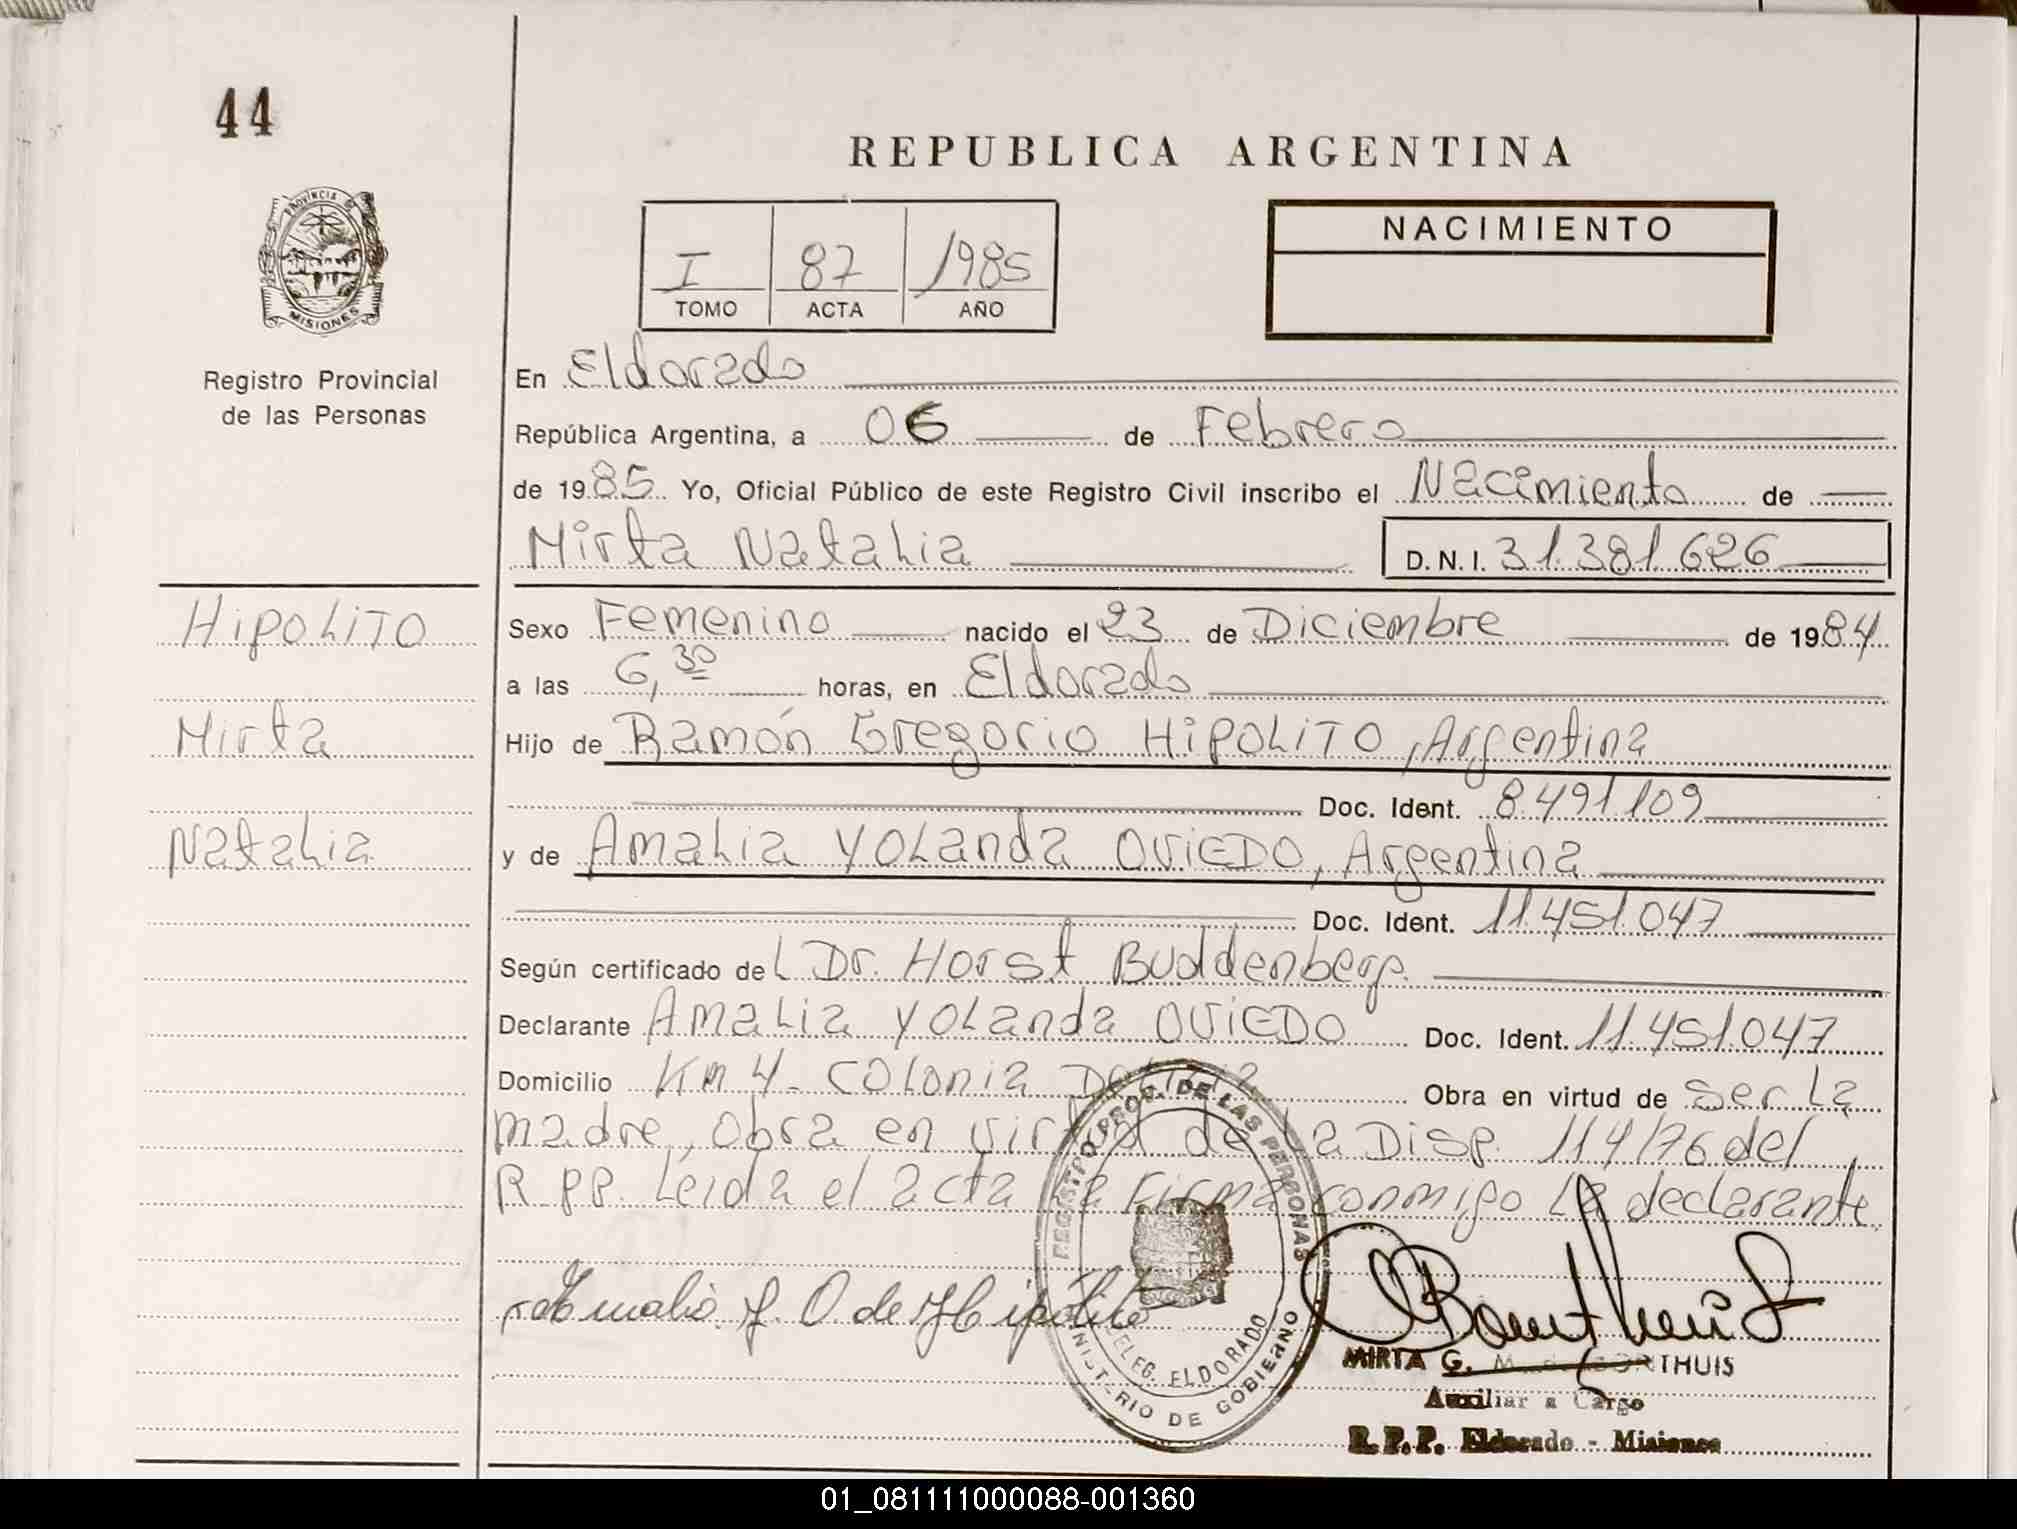 44
REPUBLICA ARGENTINA
PROVINCIA DE
MISIONES
Registro Provincial
de las Personas
I 87 1985
TOMO ACTA AÑO
NACIMIENTO
En Eldorado
República Argentina, a 06 de Febrero
de 1985 Yo, Oficial Público de este Registro Civil inscribo el Nacimiento de
Mirta Natalia D.N.I. 31.381.626
Hipolito
Mirta
Natalia
Sexo Femenino nacido el 23 de Diciembre de 1984
a las 6,30 horas, en Eldorado
Hijo de Ramón Gregorio HipoLiTO, Argentina
Doc. Ident. 8.491.109
y de Amalia Yolanda OVIEDO, Argentina
Doc. Ident. 11.451.047
Según certificado del Dr. Horst Buddenberg.
Declarante Amalia Yolanda OVIEDO Doc. Ident. 11.451.047
Domicilio Km 4 - Colonia Obra en virtud de ser la
madre, obra en virtud de la Disp. 114/76 del
R.P.P. Leída el acta la firma conmigo la declarante.
Amalia Y. O. de Hipólito
REGISTRO PROC. DE LAS PERSONAS
DELEG. ELDORADO
MINISTERIO DE GOBIERNO
MIRTA G. THUIS
Auxiliar a Cargo
R.P.P. Eldorado - Misiones
01_081111000088-001360